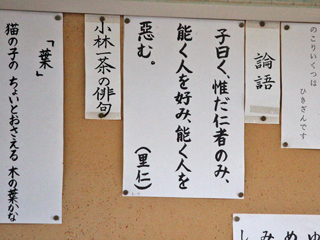 のこりいくつは
ひきざんです
論語
子曰く、惟だ仁者のみ、
能く人を好み、能く人を
惡む。
(里仁)
小林一茶の俳句
「葉」
猫の子の ちょいとおさえる 木の葉かな
ゆ
め
み
し